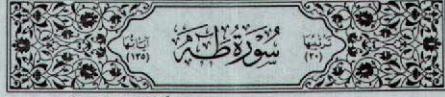 ترتيبها
(٢٠)
سُورَةُ طه
آياتها
(١٣٥)